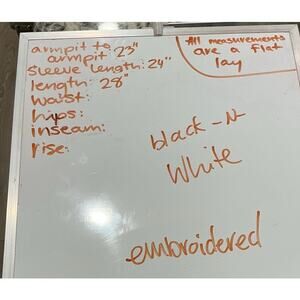 armpit to
armpit 23"
sleeve length: 24"
length: 28"
waist:
hips:
inseam:
rise:
All measurements
are a flat
lay
black-N
White
embroidered